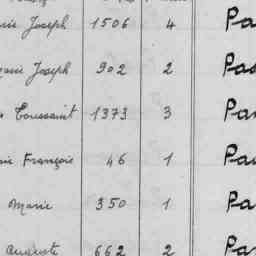 Joseph 1506 4 Pa
Joseph 902 2 Pas
Toussaint 1373 3 Pa
François 46 1 Pa
Marie 350 1 Pa
Auguste 662 2 Pa